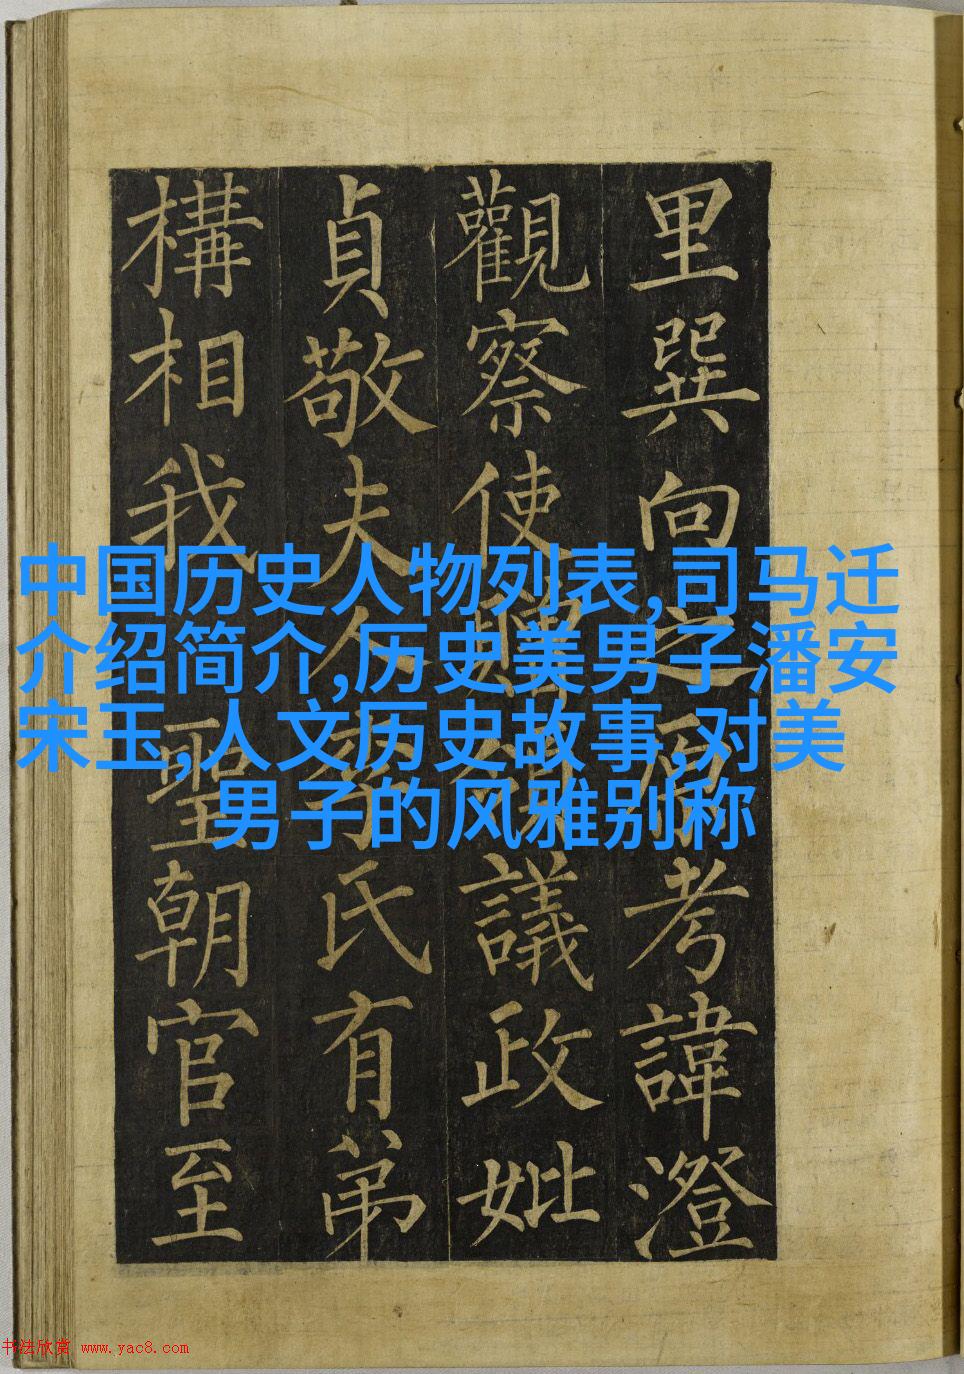 里巽向之原考諱澄
觀察使贈領議政妣
貞敬夫人李氏有弟
構相我聖朝官至
中国历史人物列表,司马迁
介绍简介,历史美男子潘安
宋玉,人文历史故事,对美
男子的风雅别称
书法欣赏 www.yac8.com